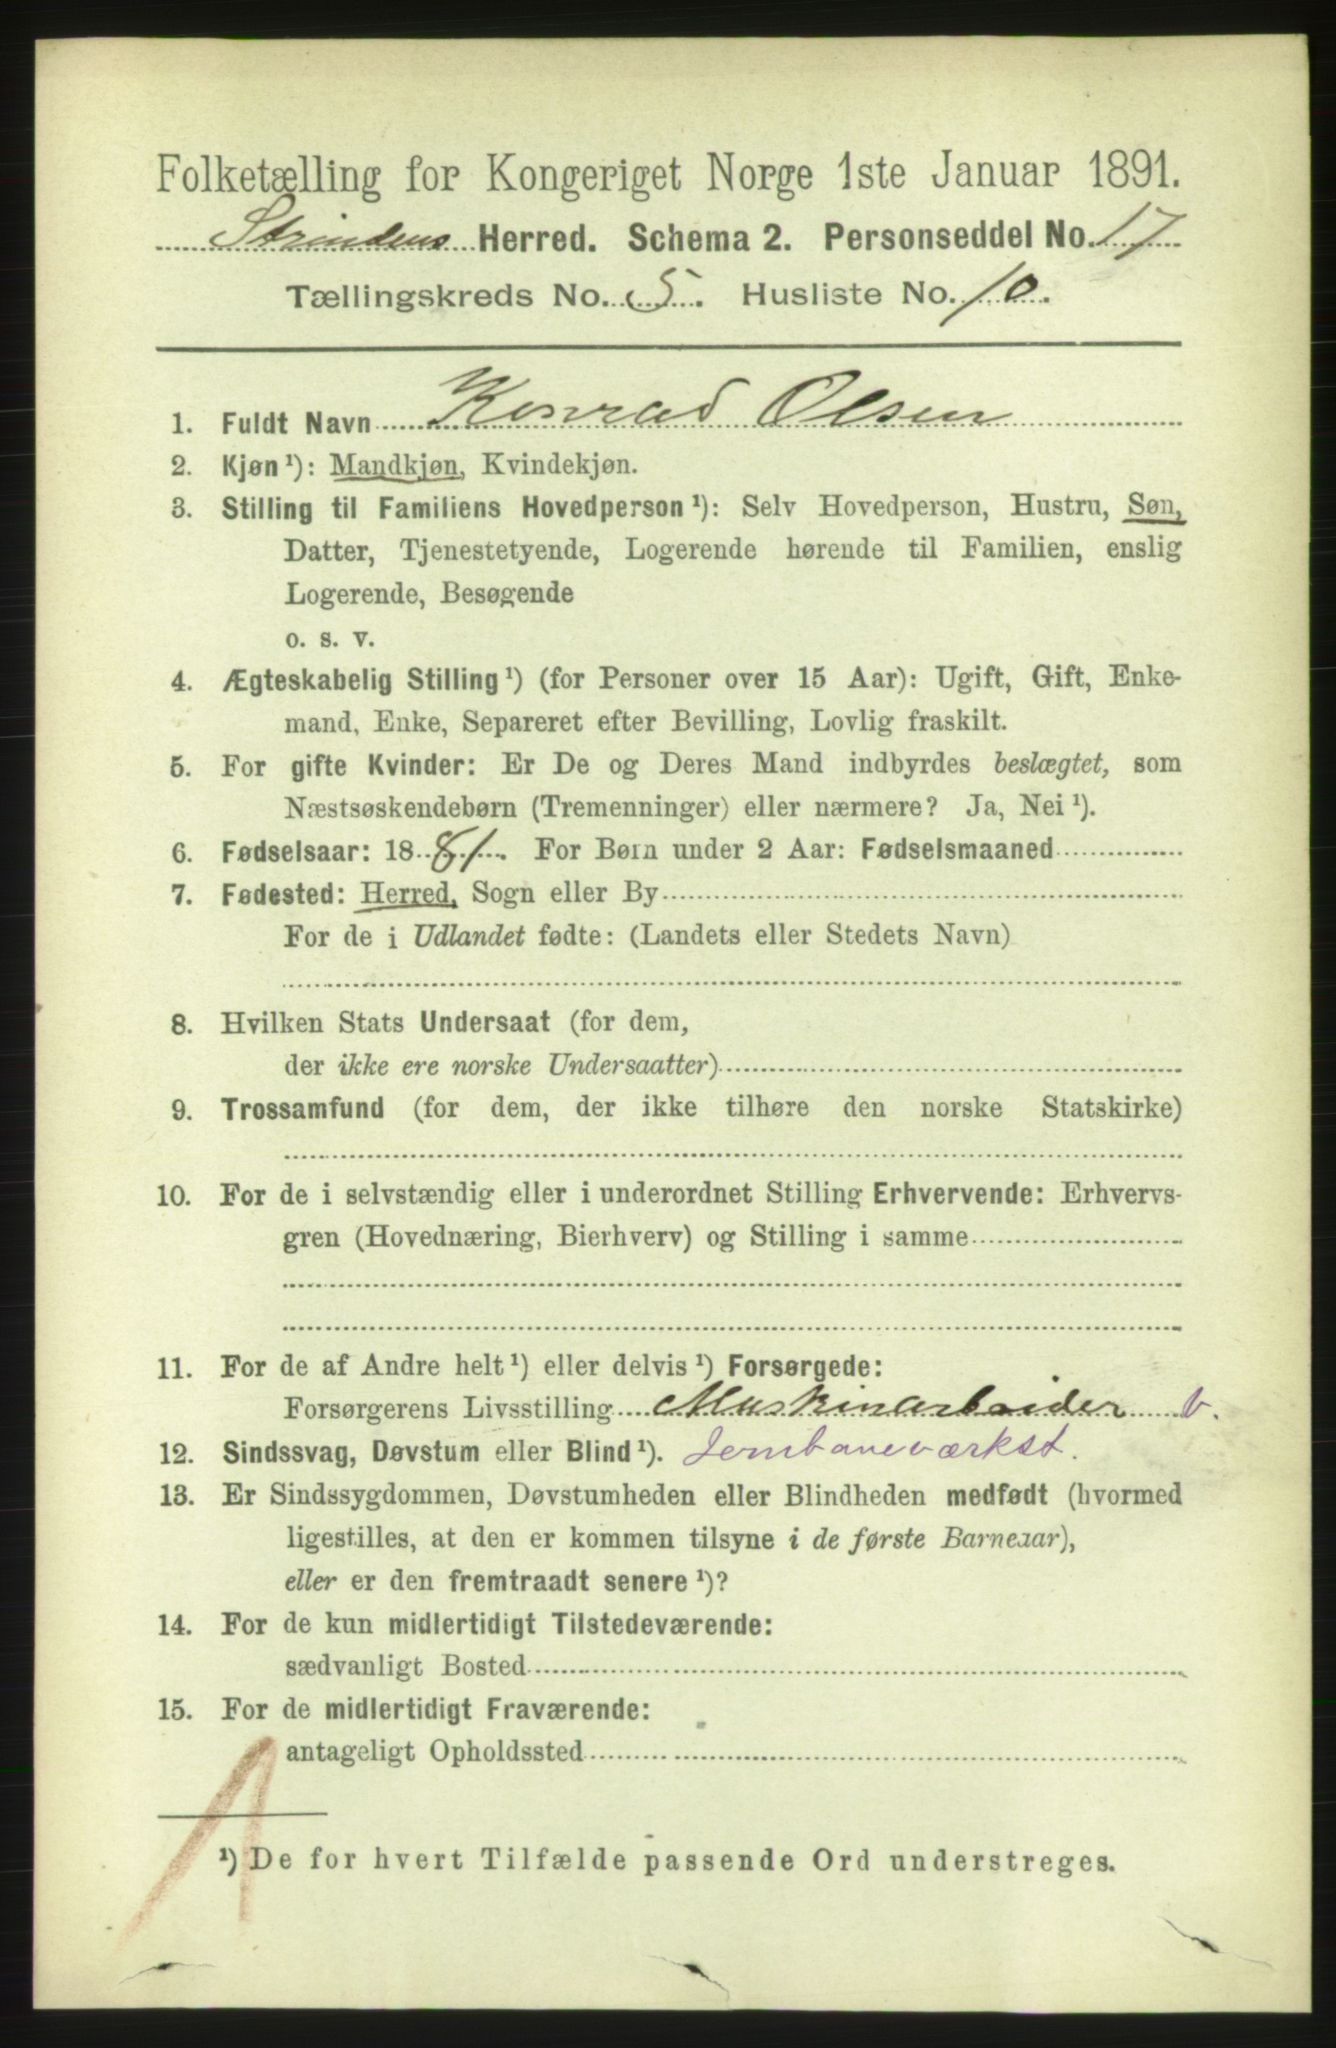 Folketælling for Kongeriget Norge 1ste Januar 1891.
Strindens Herred. Schema 2. Personseddel No. 17
Tællingskreds No. 5. Husliste No. 10.
1. Fuldt Navn Konrad Olsen
2. Kjøn¹): Mandkjøn, Kvindekjøn.
3. Stilling til Familiens Hovedperson¹): Selv Hovedperson, Hustru, Søn,
Datter, Tjenestetyende, Logerende hørende til Familien, enslig
Logerende, Besøgende
o. s. v.
4. Ægteskabelig Stilling¹) (for Personer over 15 Aar): Ugift, Gift, Enke-
mand, Enke, Separeret efter Bevilling, Lovlig fraskilt.
5. For gifte Kvinder: Er De og Deres Mand indbyrdes beslægtet, som
Næstsøskendebørn (Tremenninger) eller nærmere? Ja, Nei¹).
6. Fødselsaar: 1881. For Børn under 2 Aar: Fødselsmaaned
7. Fødested: Herred, Sogn eller By
For de i Udlandet fødte: (Landets eller Stedets Navn)
8. Hvilken Stats Undersaat (for dem,
der ikke ere norske Undersaatter)
9. Trossamfund (for dem, der ikke tilhøre den norske Statskirke)
10. For de i selvstændig eller i underordnet Stilling Erhvervende: Erhvervs-
gren (Hovednæring, Bierhverv) og Stilling i samme
11. For de af Andre helt¹) eller delvis¹) Forsørgede:
Forsørgerens Livsstilling Maskinarbeider v.
12. Sindssvag, Døvstum eller Blind¹). Jernbaneværkst.
13. Er Sindssygdommen, Døvstumheden eller Blindheden medfødt (hvormed
ligestilles, at den er kommen tilsyne i de første Barneaar),
eller er den fremtraadt senere¹)?
14. For de kun midlertidigt Tilstedeværende:
sædvanligt Bosted
15. For de midlertidigt Fraværende:
antageligt Opholdssted
¹) De for hvert Tilfælde passende Ord understreges.